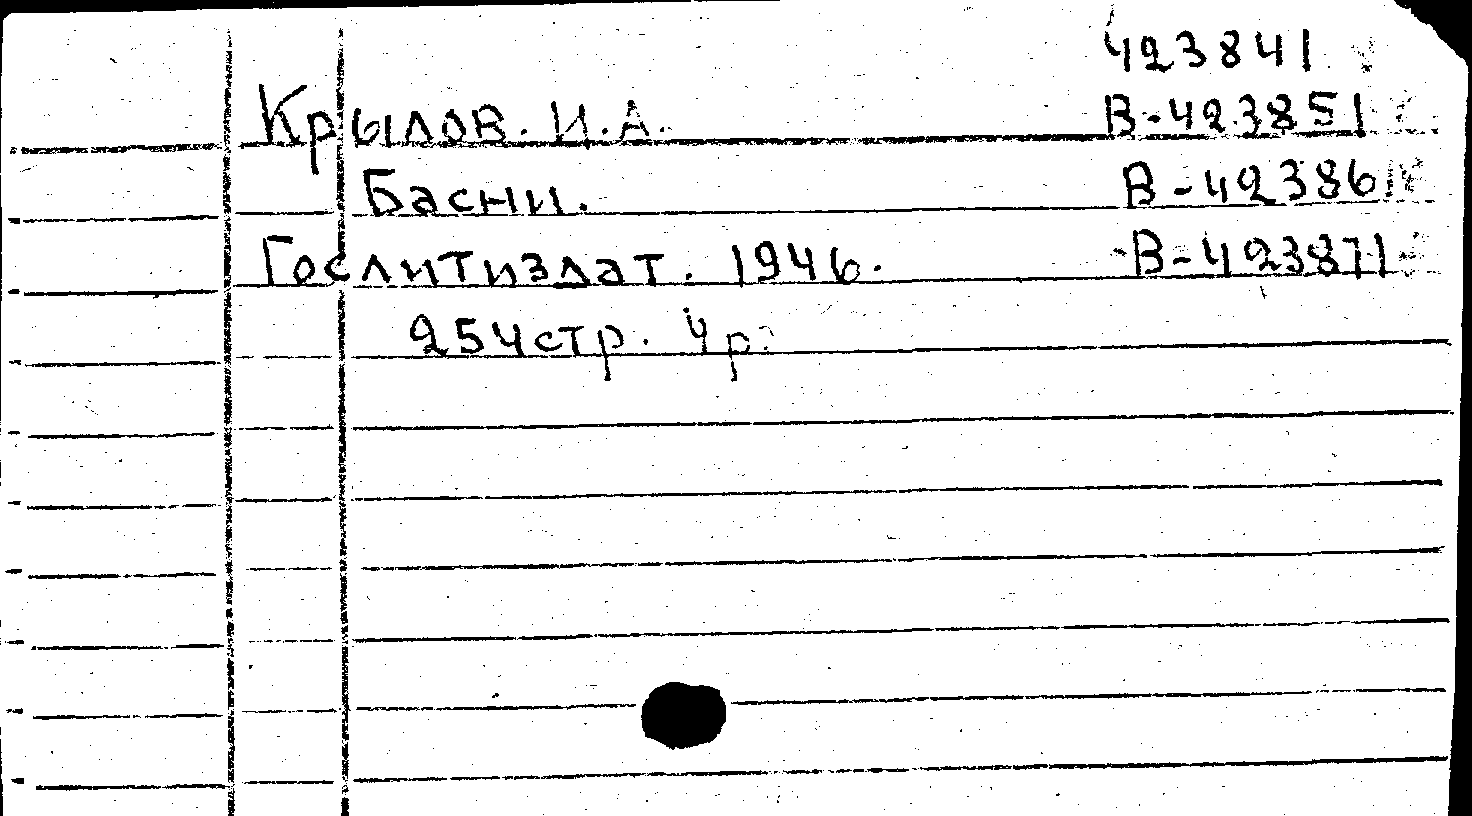 423841
Крылов. И.А. В-423851
Басни. В-423861
Гослитиздат. 1946. В-423871
254стр. 4р.